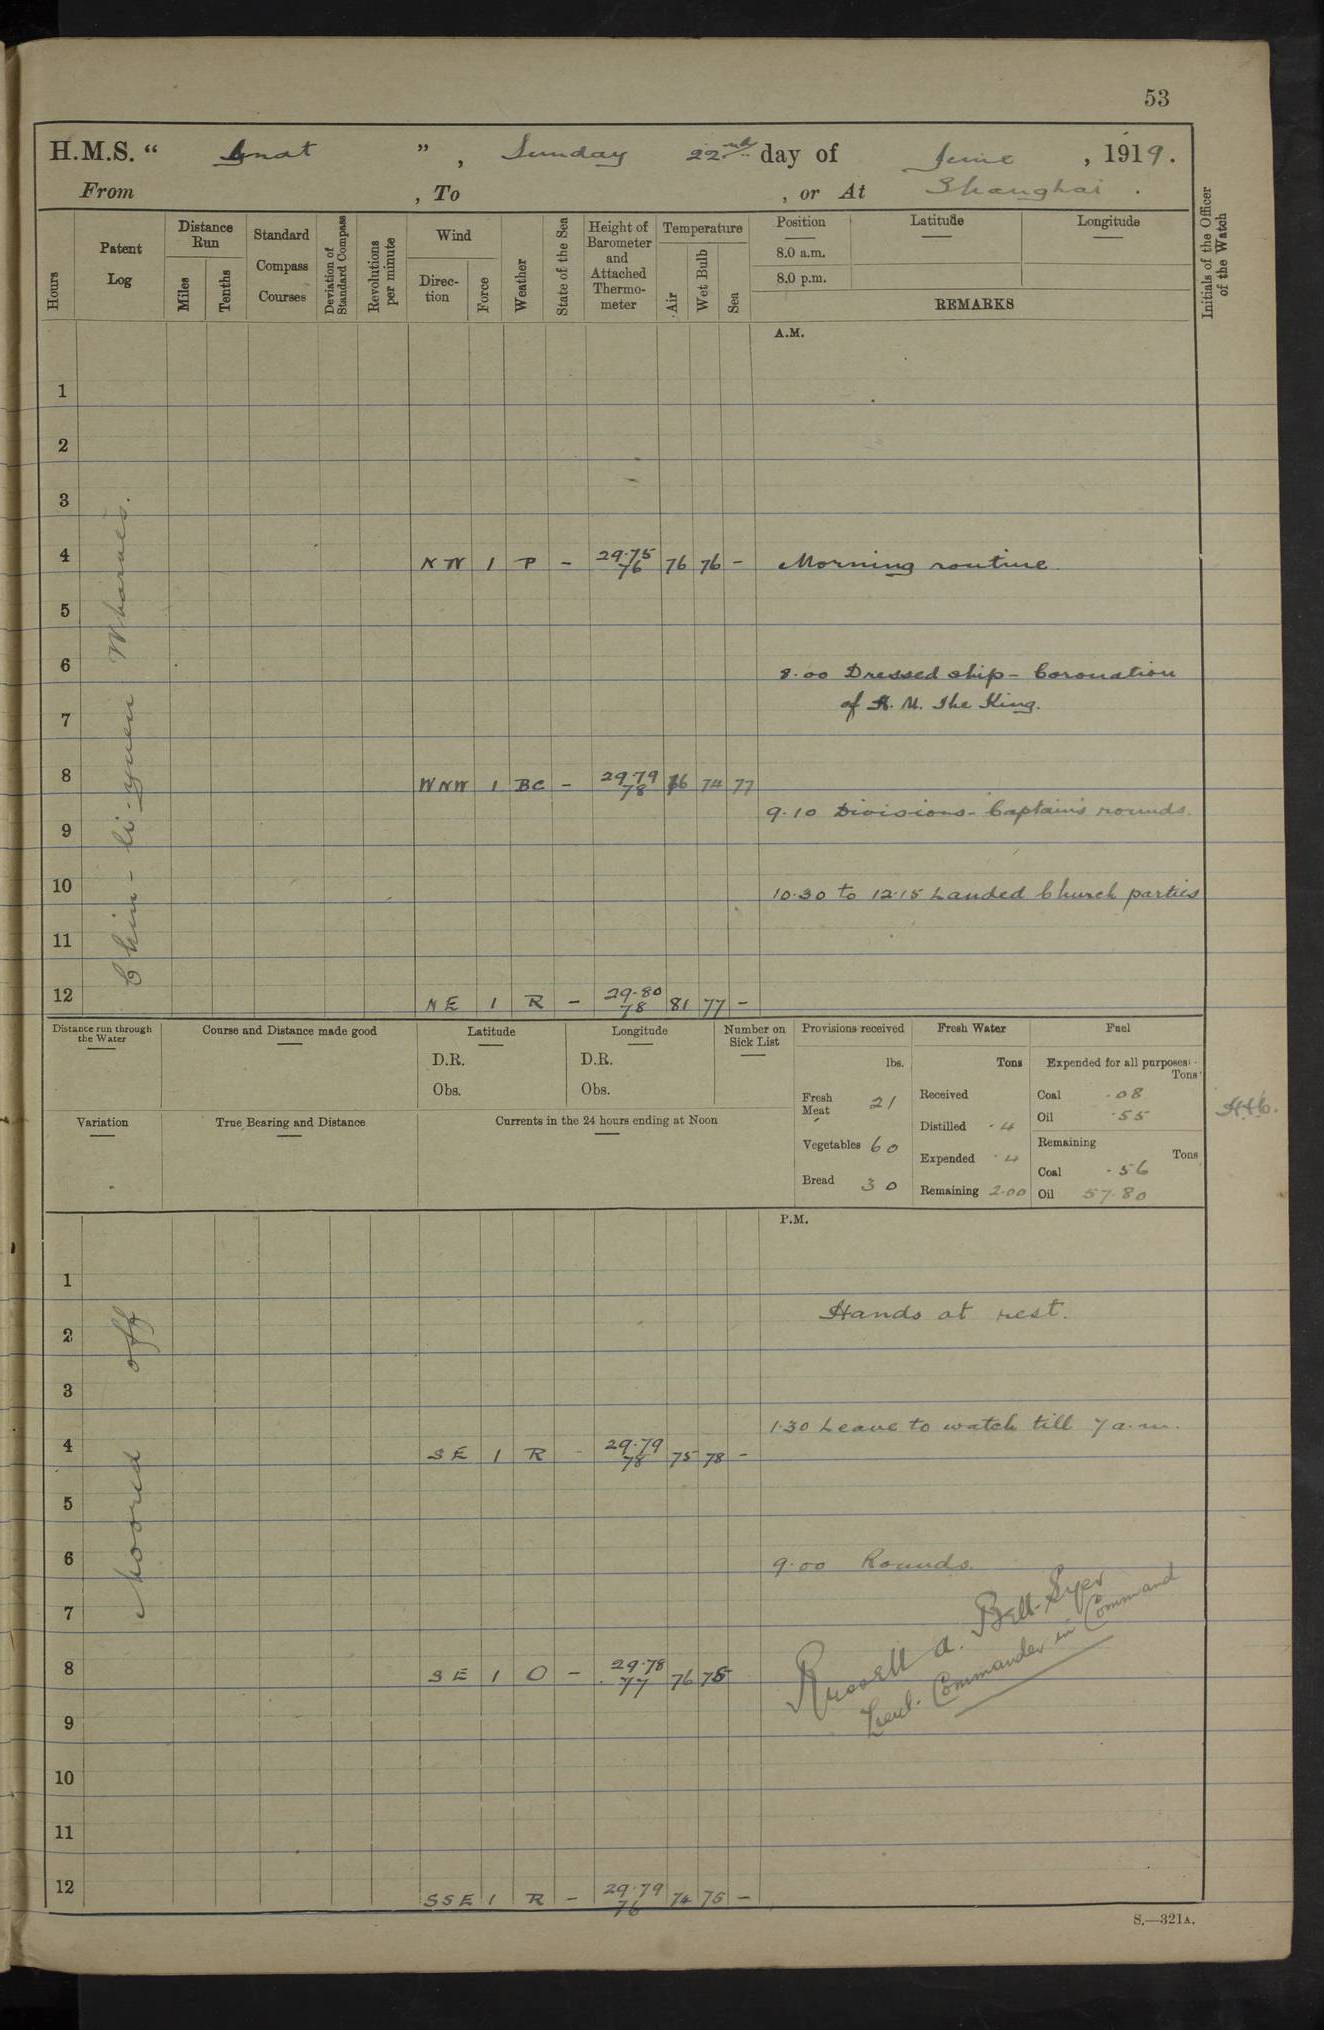 53
H.M.S. “ Gnat ” , Sunday 22nd day of June , 1919.
From , To , or At Shanghai .
Hours
Patent Log
Distance Run
Miles
Tenths
Standard Compass Courses
Deviation of Standard Compass
Revolutions per minute
Wind
Direc-tion
Force
Weather
State of the Sea
Height of Barometer and Attached Thermo-meter
Temperature
Air
Wet Bulb
Sea
Position
8.0 a.m.
8.0 p.m.
Latitude
Longitude
REMARKS
Initials of the Officer of the Watch
A.M.
1
2
3
4 NW 1 P - 29.75 76 76 76 - Morning routine
5
6
8.00 Dressed ship - Coronation
of H. M. The King.
7
8 WNW 1 BC - 29.79 78 76 74 77
9.10 Divisions - Captain's rounds.
9
10
10.30 to 12.15 Landed Church parties
11
12 NE 1 R - 29.80 78 81 77 -
Distance run through the Water
Course and Distance made good
Latitude
D.R.
Obs.
Longitude
D.R.
Obs.
Number on Sick List
Provisions received
lbs.
Fresh Meat 21
Vegetables 60
Bread 30
Fresh Water
Tons
Received
Distilled .4
Expended .4
Remaining 2.00
Fuel
Expended for all purposes:-
Tons
Coal .08
Oil .55
Remaining
Tons
Coal .56
Oil 57.80
Variation
True Bearing and Distance
Currents in the 24 hours ending at Noon
P.M.
1
Hands at rest.
2
3
1.30 Leave to watch till 7 a.m.
4 SE 1 R - 29.79 78 75 78 -
5
6
9.00 Rounds.
7
8 SE 1 O - 29.78 77 76 75
9
10
11
12 SSE 1 R - 29.79 76 74 75 -
Moored off
Chin-li-yuen Wharves.
Russell A. Bell-Syer
Lieut. Commander in Command
S.—321A.